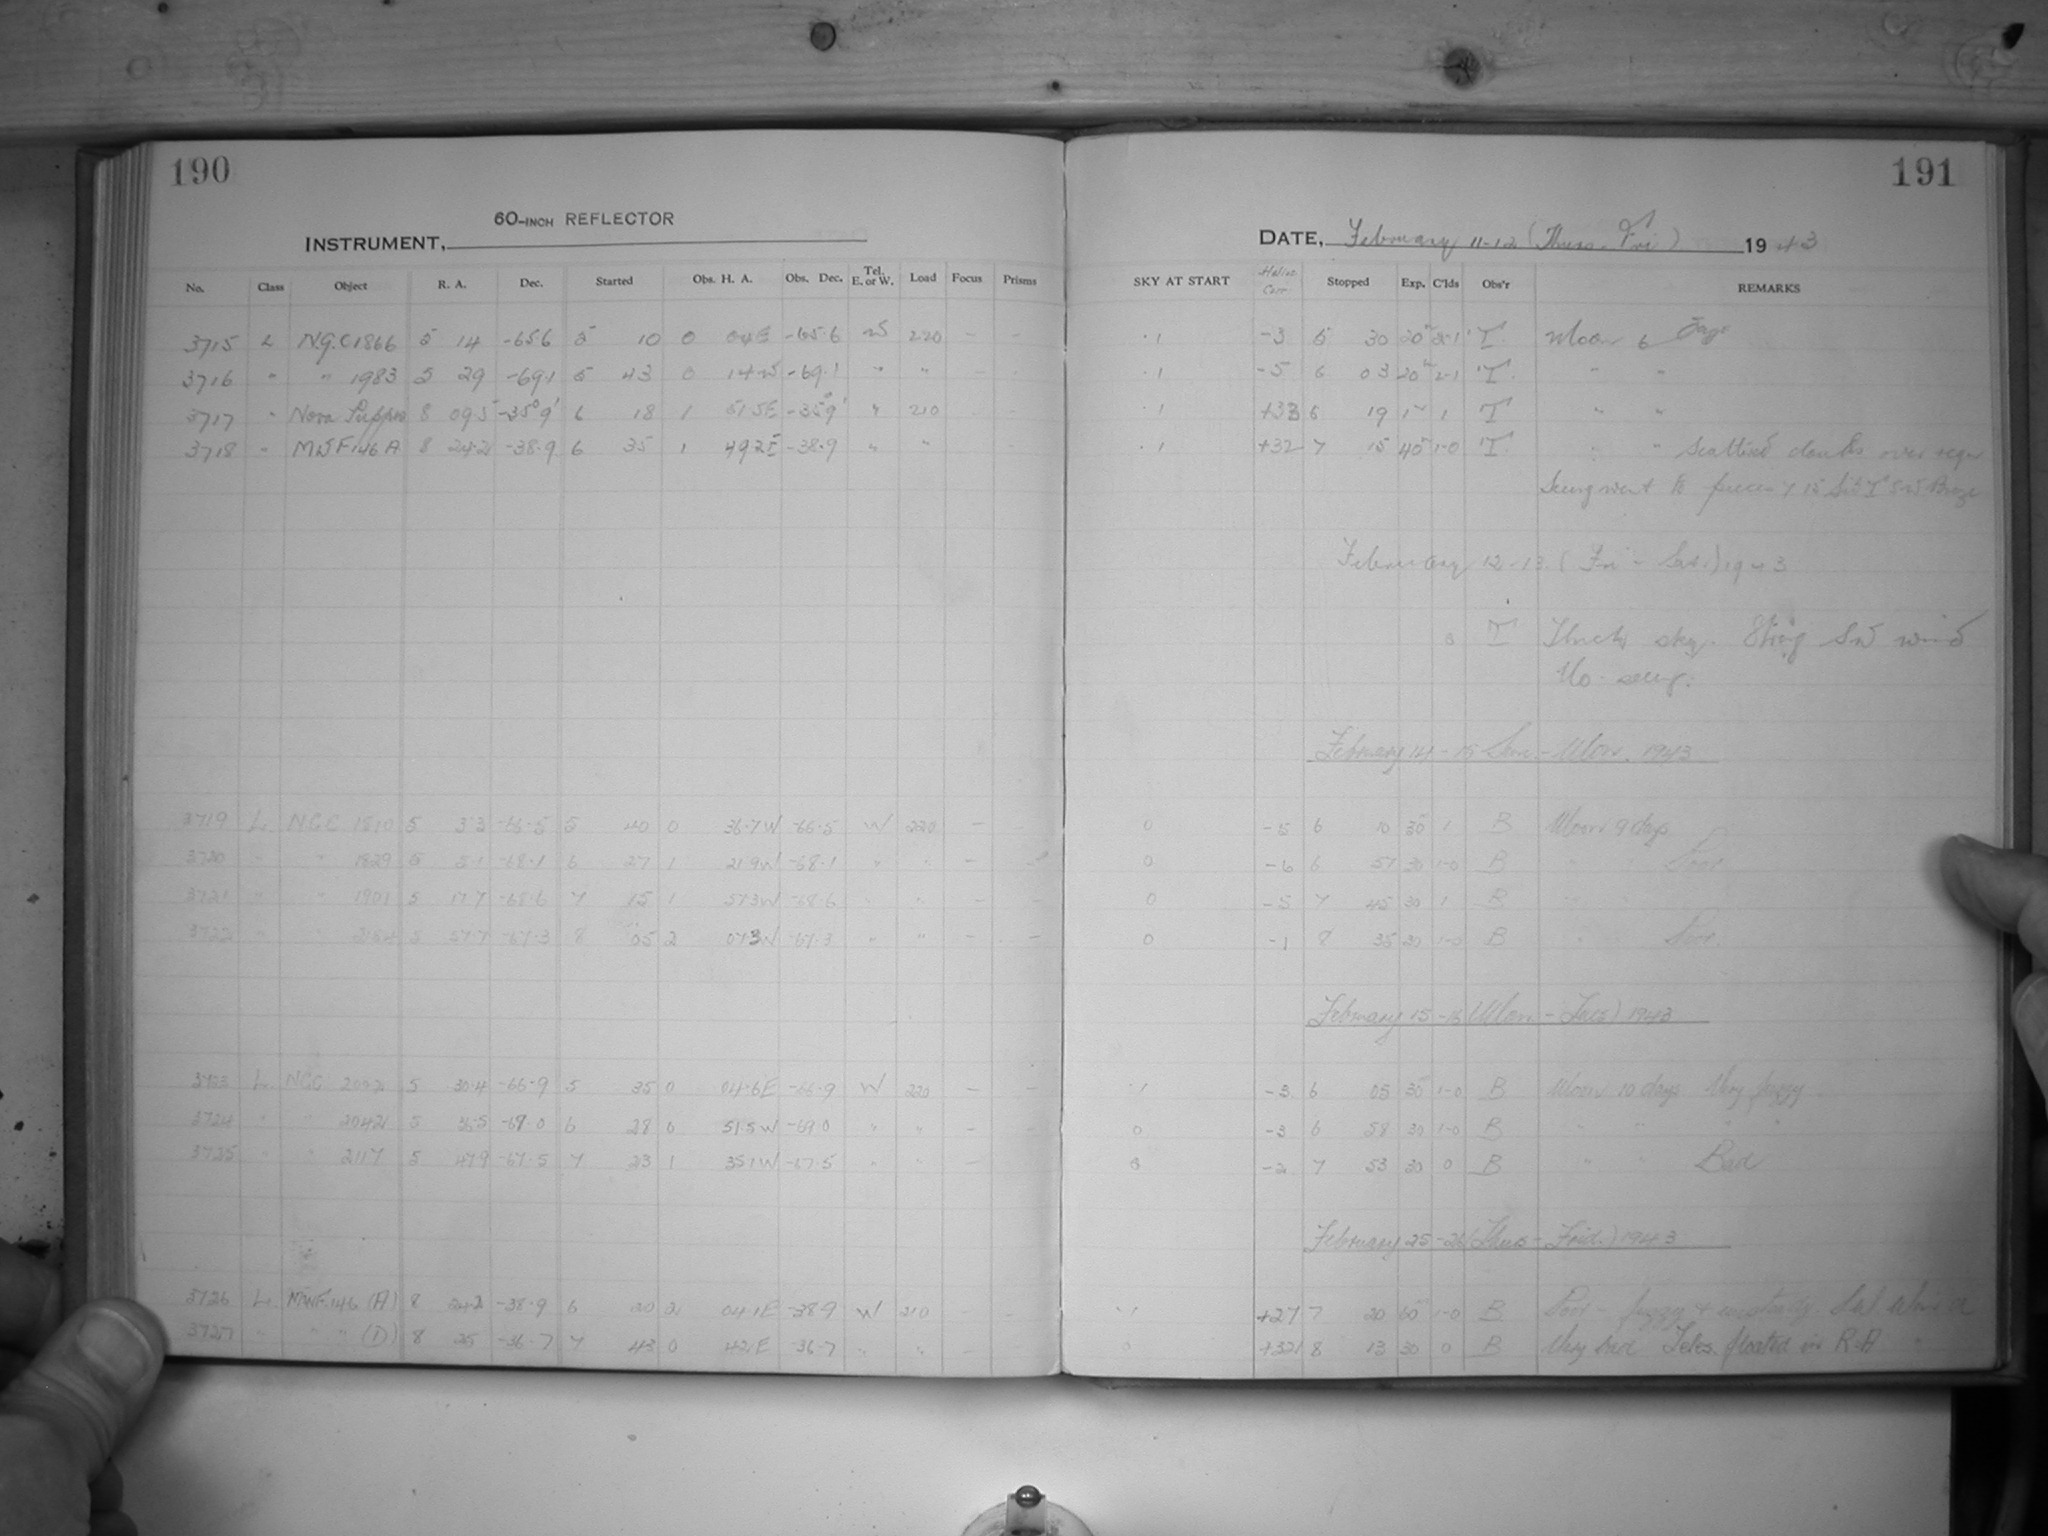 190
60-INCH REFLECTOR
INSTRUMENT,
No. Class Object R. A. Dec. Started Obs. H. A. Obs. Dec. Tel. E. or W. Load Focus Prisms
3715 L N.G.C 1866 5 14 -65.6 5 10 0 04E -65.6 W 220 - -
3716 " " 1983 5 29 -69.1 5 43 0 14W -69.1 " " - -
3717 " Nova Puppis 8 09.5 -35°9' 6 18 1 51.5E -35°9' " 210
3718 " MWF 146 A 8 24.2 -38.9 6 35 1 49.2E -38.9 " "
3719 L NGC 1810 5 3.3 -66.5 5 40 0 36.7W -66.5 W 220 - -
3720 " " 1829 5 5.1 -68.1 6 27 1 21.9W -68.1 " " - -
3721 " " 1901 5 17.7 -68.6 7 15 1 57.3W -68.6 " " - -
3722 " " 2154 5 57.7 -67.3 8 05 2 07.3W -67.3 " " - -
3723 L NGC 2002 5 30.4 -66.9 5 35 0 04.6E -66.9 W 220 - -
3724 " " 2042 5 36.5 -69.0 6 28 0 51.5W -69.0 " " - -
3725 " " 2117 5 47.9 -67.5 7 23 1 35.1W -67.5 " " -
3726 L MWF.146 (A) 8 24.2 -38.9 6 20 2 04.1E -38.9 W 210 - -
3727 " " " (D) 8 25 -36.7 7 43 0 42E -36.7 " " - -
191
DATE, February 11-12 (Thurs. Fri) 1943
SKY AT START Helio. Corr. Stopped Exp. C'lds Obs'r REMARKS
.1 -3 5 30 20m 2-1 T. Moon 6 days
.1 -5 6 03 20m 2-1 T. " "
.1 +33 6 19 1m 1 T " "
.1 +32 7 15 40m 1-0 T. " " Scattered clouds over
Seeing went to pieces 7 15 SW
February 12-13 (Fri - Sat.) 1943
0 T Thick sky. Strong SW wind
No seeing.
February 14-15 Sun. - Mon. 1943
0 -5 6 10 30m 1 B Moon 9 days
0 -6 6 57 30 1-0 B " Poor
0 -5 7 45 30 1 B " "
0 -1 8 35 30 1-0 B " Poor.
February 15-16 (Mon - Tues) 1943
.1 -3 6 05 30m 1-0 B Moon 10 days Very fuzzy.
0 -3 6 58 30 1-0 B " " " "
0 -2 7 53 30 0 B " " Bad
February 25-26 (Thurs - Frid.) 1943
.1 +27 7 20 60m 1-0 B Poor - fuzzy & unsteady.
0 +32 8 13 30 0 B Very bad Teles. floated in R.A